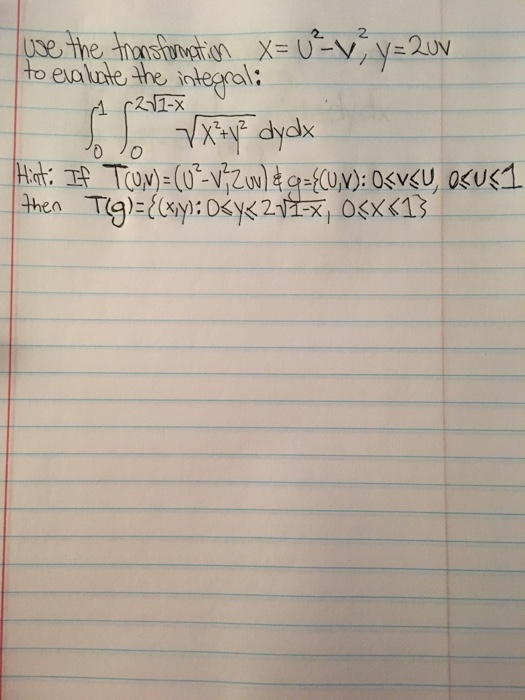 Use the transformation x = u²-v², y = 2uv
to evaluate the integral:
∫₀¹ ∫₀^(2√(1-x)) √(x²+y²) dydx
Hint: If T(u,v)=(u²-v², 2uv) & g={(u,v): 0≤v≤u, 0≤u≤1
then T(g)={(x,y): 0≤y≤2√(1-x), 0≤x≤1}